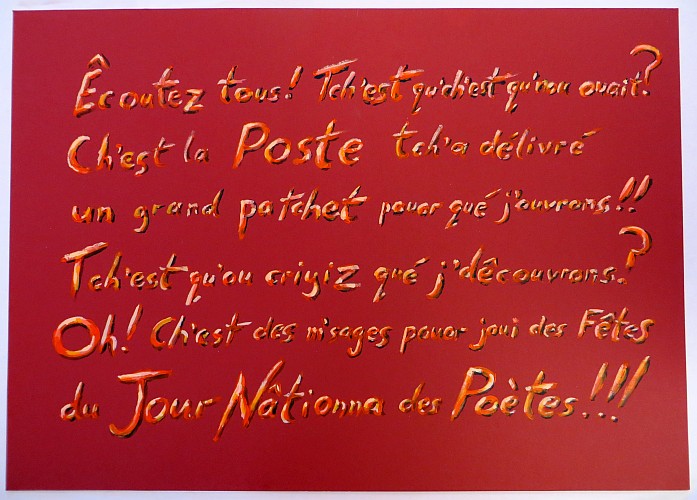 Êcoutez tous! Tch'est qu'ch'est qu'nou ouait?
Ch'est la Poste tch'a délivré
un grand patchet pouor qué j'ouvrons!!
Tch'est qu'ou criyiz qué j'dêcouvrons?
Oh! Ch'est des m'sages pouor joui des Fêtes
du Jour Nâtionna des Poètes!!!